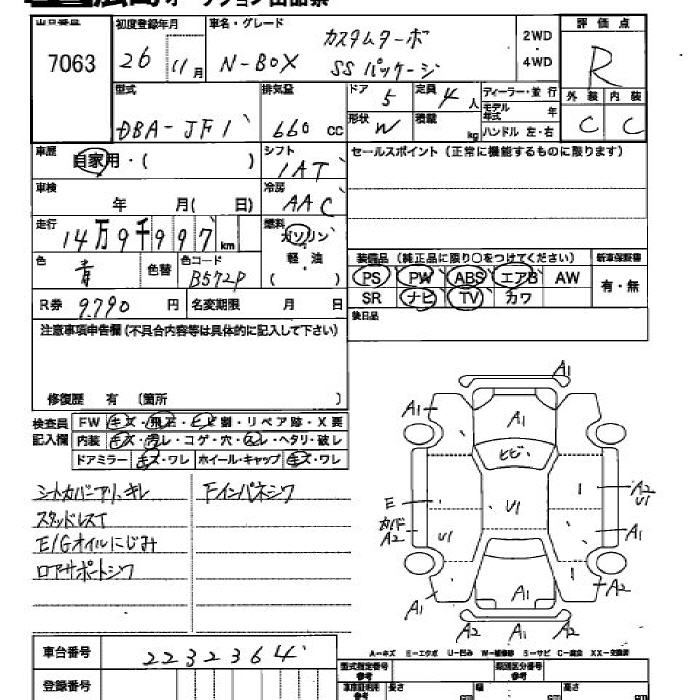 広島オークション出品票
出品番号 7063
初度登録年月 26 11月
車名・グレード N-BOX カスタムターボ SSパッケージ
2WD・4WD
評価点 R
外装 内装
C C
型式 DBA-JF1
排気量 660 CC
ドア 5
定員 4人
形状 W
積載 kg
ディーラー・並行
モデル年式 年
ハンドル 左・右
車歴 自家用・( )
シフト IAT
セールスポイント(正常に機能するものに限ります)
車検 年 月( 日)
冷房 AAC
走行 14万9千997km
燃料 ガソリン 軽・油 ( )
色 青 色替
色コード B572P
装備品(純正品に限り○をつけてください)
新車保証書 有・無
PS PW ABS エアB AW
SR ナビ TV カワ
R券 9,790円
名変期限 月 日
後日品
注意事項申告欄(不具合内容等は具体的に記入して下さい)
修復歴 有 〔箇所 〕
検査員記入欄
FW キズ・飛石・ヒビ割・リペア跡・X要
内装 キズ・汚レ・コゲ・穴・スレ・ヘタリ・破レ
ドアミラー キズ・ワレ ホイール・キャップ キズ・ワレ
シートカバーアリ、キレ
スタッドレスT
E/Gオイルにじみ
ロアサポートシワ
Fインパネシワ
A1
A1 A1 A1
ヒビ
E U1 A2 U1
カバド A2 U1 A1
A1 A1 A2
A2 A1 A2
A-キズ E-エクボ U-凹み W-補修跡 S-サビ C-腐食 XX-交換済
車台番号 2232364
登録番号
型式指定番号 参考
類別区分番号 参考
車庫証明用 参考
長さ 幅 高さ